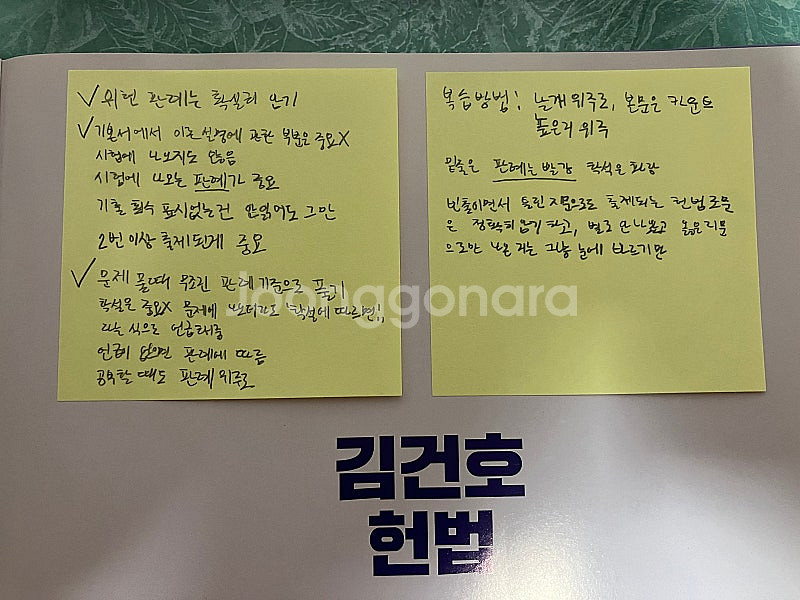 ✓ 위헌 판례는 확실히 알기
✓ 기본서에서 이론설명에 관한 부분은 중요X
시험에 나오지도 않음
시험에 나오는 판례가 중요
기출 횟수 표시없는건 안읽어도 그만
2번 이상 출제된게 중요
✓ 문제 풀때 무조건 판례 기준으로 풀기
학설은 중요X 문제에 나오더라도 "학설에 따르면",
라는 식으로 언급해줌
언급이 없으면 판례에 따름
공부할 때도 판례 위주로
복습방법: 날개 위주로, 본문은 카운트
높은거 위주
밑줄은 판례는 빨강 학설은 파랑
빈출이면서 틀린 지문으로도 출제되는 헌법조문
은 정확히 암기 하고, 별로 안나왔고 옳은지문
으로만 나온 거는 그냥 눈에 바르기만
Joonggonara
김건호
헌법